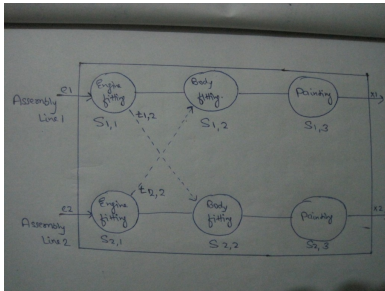 e1
Assembly
Line 1
Engine
fitting
S1,1
Body
fitting
S1,2
Painting
S1,3
x1
t1,2
t2,2
e2
Assembly
Line 2
Engine
fitting
S2,1
Body
fitting
S2,2
Painting
S2,3
x2